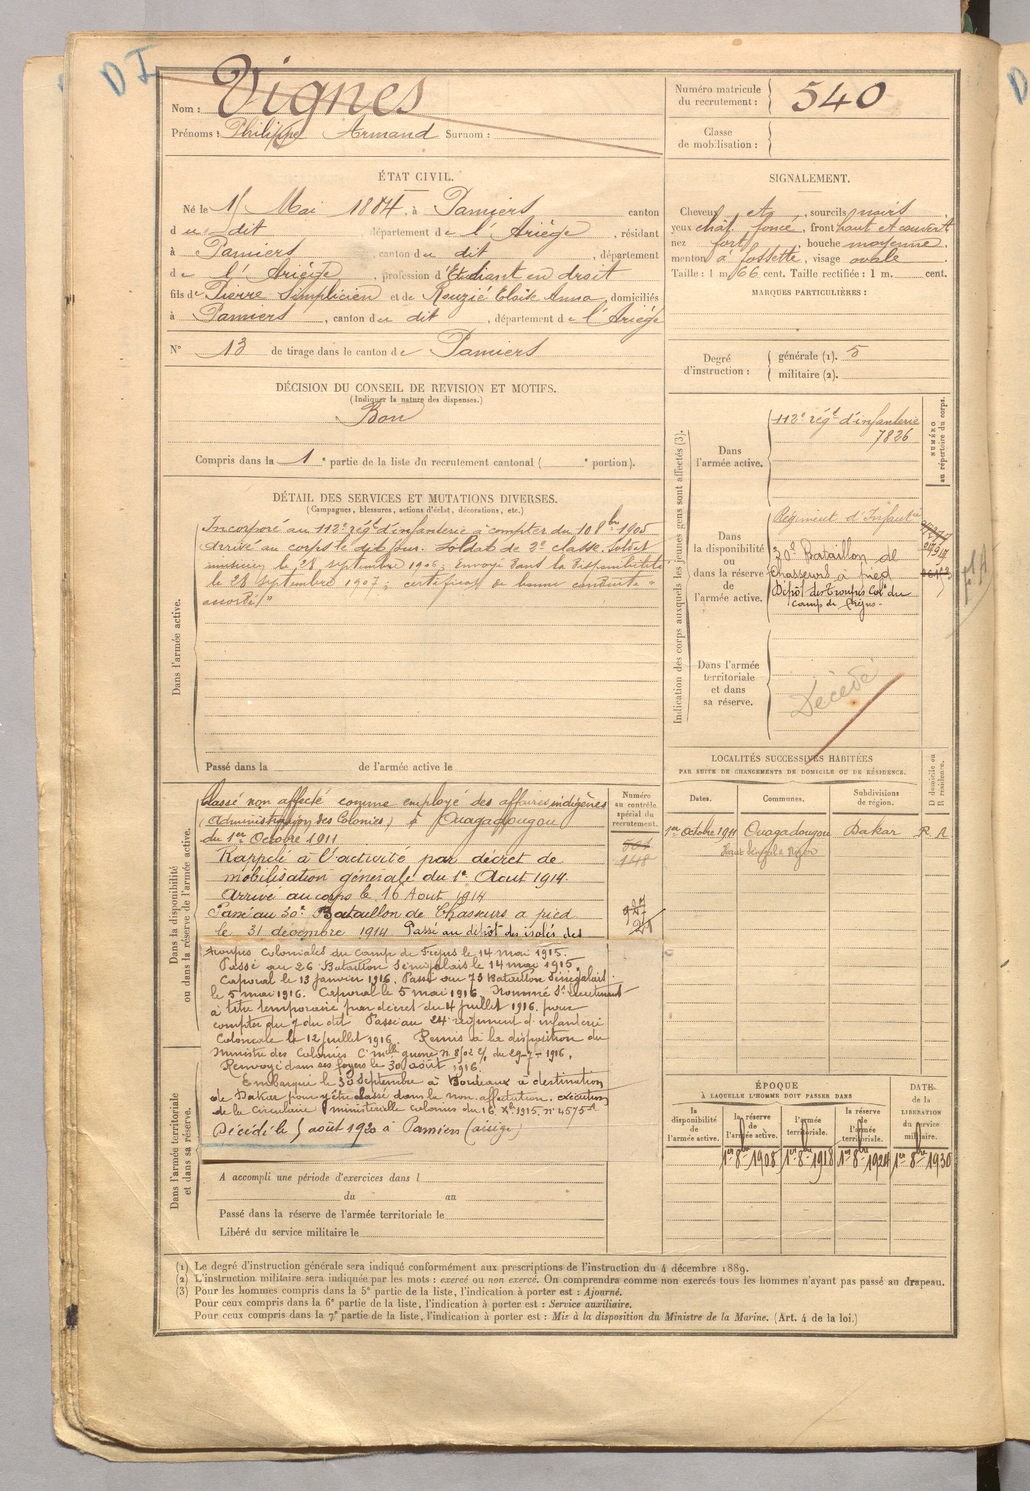 D I
Nom : Vignes
Prénoms : Philippe Armand Surnom :
Numéro matricule du recrutement : 540
Classe de mobilisation :
ÉTAT CIVIL.
Né le Mai 1884, à Pamiers canton
du dit département de l'Ariège, résidant
à Pamiers, canton du dit, département
de l'Ariège, profession d'Etudiant en droit
fils de Pierre Simplicien et de Rouzié Anna, domiciliés
à Pamiers, canton du dit, département de l'Ariège
N° 13 de tirage dans le canton de Pamiers
SIGNALEMENT.
Cheveux et, sourcils noirs
yeux chât. foncé, front haut et couvert
nez fort, bouche moyenne,
menton à fossette, visage ovale
Taille : 1 m. 66 cent. Taille rectifiée : 1 m. cent.
MARQUES PARTICULIÈRES :
Degré d'instruction :
générale (1). 5
militaire (2).
DÉCISION DU CONSEIL DE REVISION ET MOTIFS.
(Indiquer la nature des dispenses.)
Bon
Compris dans la 1e partie de la liste du recrutement cantonal ( e portion).
DÉTAIL DES SERVICES ET MUTATIONS DIVERSES.
(Campagnes, blessures, actions d'éclat, décorations, etc.)
Dans l'armée active.
Incorporé au 112e régt d'infanterie à compter du 10 8bre 1905
arrivé au corps le dit jour. Soldat de 2e classe.
le 28 septembre 1906; Envoyé dans la disponibilité
le 28 septembre 1907; certificat de bonne conduite "
accordé "
Passé dans la de l'armée active le
Indication des corps auxquels les jeunes gens sont affectés (3).
NUMÉRO au répertoire du corps.
Dans l'armée active.
112e régt d'infanterie
7826
Dans la disponibilité ou dans la réserve de l'armée active.
Régiment d'Infantie
30e Bataillon de
chasseurs à pied
Dépôt des Troupes Cales du
camp de Fréjus.
Dans l'armée territoriale et dans sa réserve.
Décédé
Dans la disponibilité ou dans la réserve de l'armée active.
Numéro au contrôle spécial du recrutement.
Classé non affecté comme employé des affaires indigènes
(Administration des Colonies) à Ouagadougou
du 1er Octobre 1911
Rappelé à l'activité par décret de
mobilisation générale du 1er Aout 1914.
Arrivé au corps le 16 Aout 1914
Passé au 30e Bataillon de Chasseurs à pied
le 31 décembre 1914 Passé au dépôt des isolés des
troupes coloniales du camp de Fréjus le 14 mai 1915.
Passé au 26 Bataillon Sénégalais le 14 mai 1915
Caporal le 13 janvier 1916. Passé au 73 Bataillon Sénégalais
le 5 mai 1916. Caporal le 5 mai 1916. Nommé St lieutenant
à titre temporaire par décret du 4 juillet 1916. pour
compter du 7 du dit Passé au 24 régiment d'infanterie
Coloniale le 12 juillet 1916. Remis à la disposition du
Ministre des Colonies
Renvoyé dans ses foyers le 30 août 1916.
Embarqué le 30 Septembre à Bordeaux à destination
de Dakar pour y être classé dans la non affectation. exécution
de la Circulaire ministérielle colonies du 16 Xbre 1915 n° 4575
Décédé le 5 août 1920 à Pamiers (ariège)
Dans l'armée territoriale et dans sa réserve.
A accompli une période d'exercices dans l
du au
Passé dans la réserve de l'armée territoriale le
Libéré du service militaire le
LOCALITÉS SUCCESSIVES HABITÉES
PAR SUITE DE CHANGEMENTS DE DOMICILE OU DE RÉSIDENCE.
D domicile ou R résidence.
Dates. Communes. Subdivisions de région.
1er Octobre 1911 Ouagadougou Dakar R
Haut Sénégal & Niger
ÉPOQUE
À LAQUELLE L'HOMME DOIT PASSER DANS
la disponibilité de l'armée active.
la réserve de l'armée active.
l'armée territoriale.
la réserve de l'armée territoriale.
DATE de la LIBÉRATION du service militaire.
1er 8bre 1908 1er 8bre 1918 1er 8bre 1924 1er 8bre 1930
(1) Le degré d'instruction générale sera indiqué conformément aux prescriptions de l'instruction du 4 décembre 1889.
(2) L'instruction militaire sera indiquée par les mots : exercé ou non exercé. On comprendra comme non exercés tous les hommes n'ayant pas passé au drapeau.
(3) Pour les hommes compris dans la 5e partie de la liste, l'indication à porter est : Ajourné.
Pour ceux compris dans la 6e partie de la liste, l'indication à porter est : Service auxiliaire.
Pour ceux compris dans la 7e partie de la liste, l'indication à porter est : Mis à la disposition du Ministre de la Marine. (Art. 4 de la loi.)